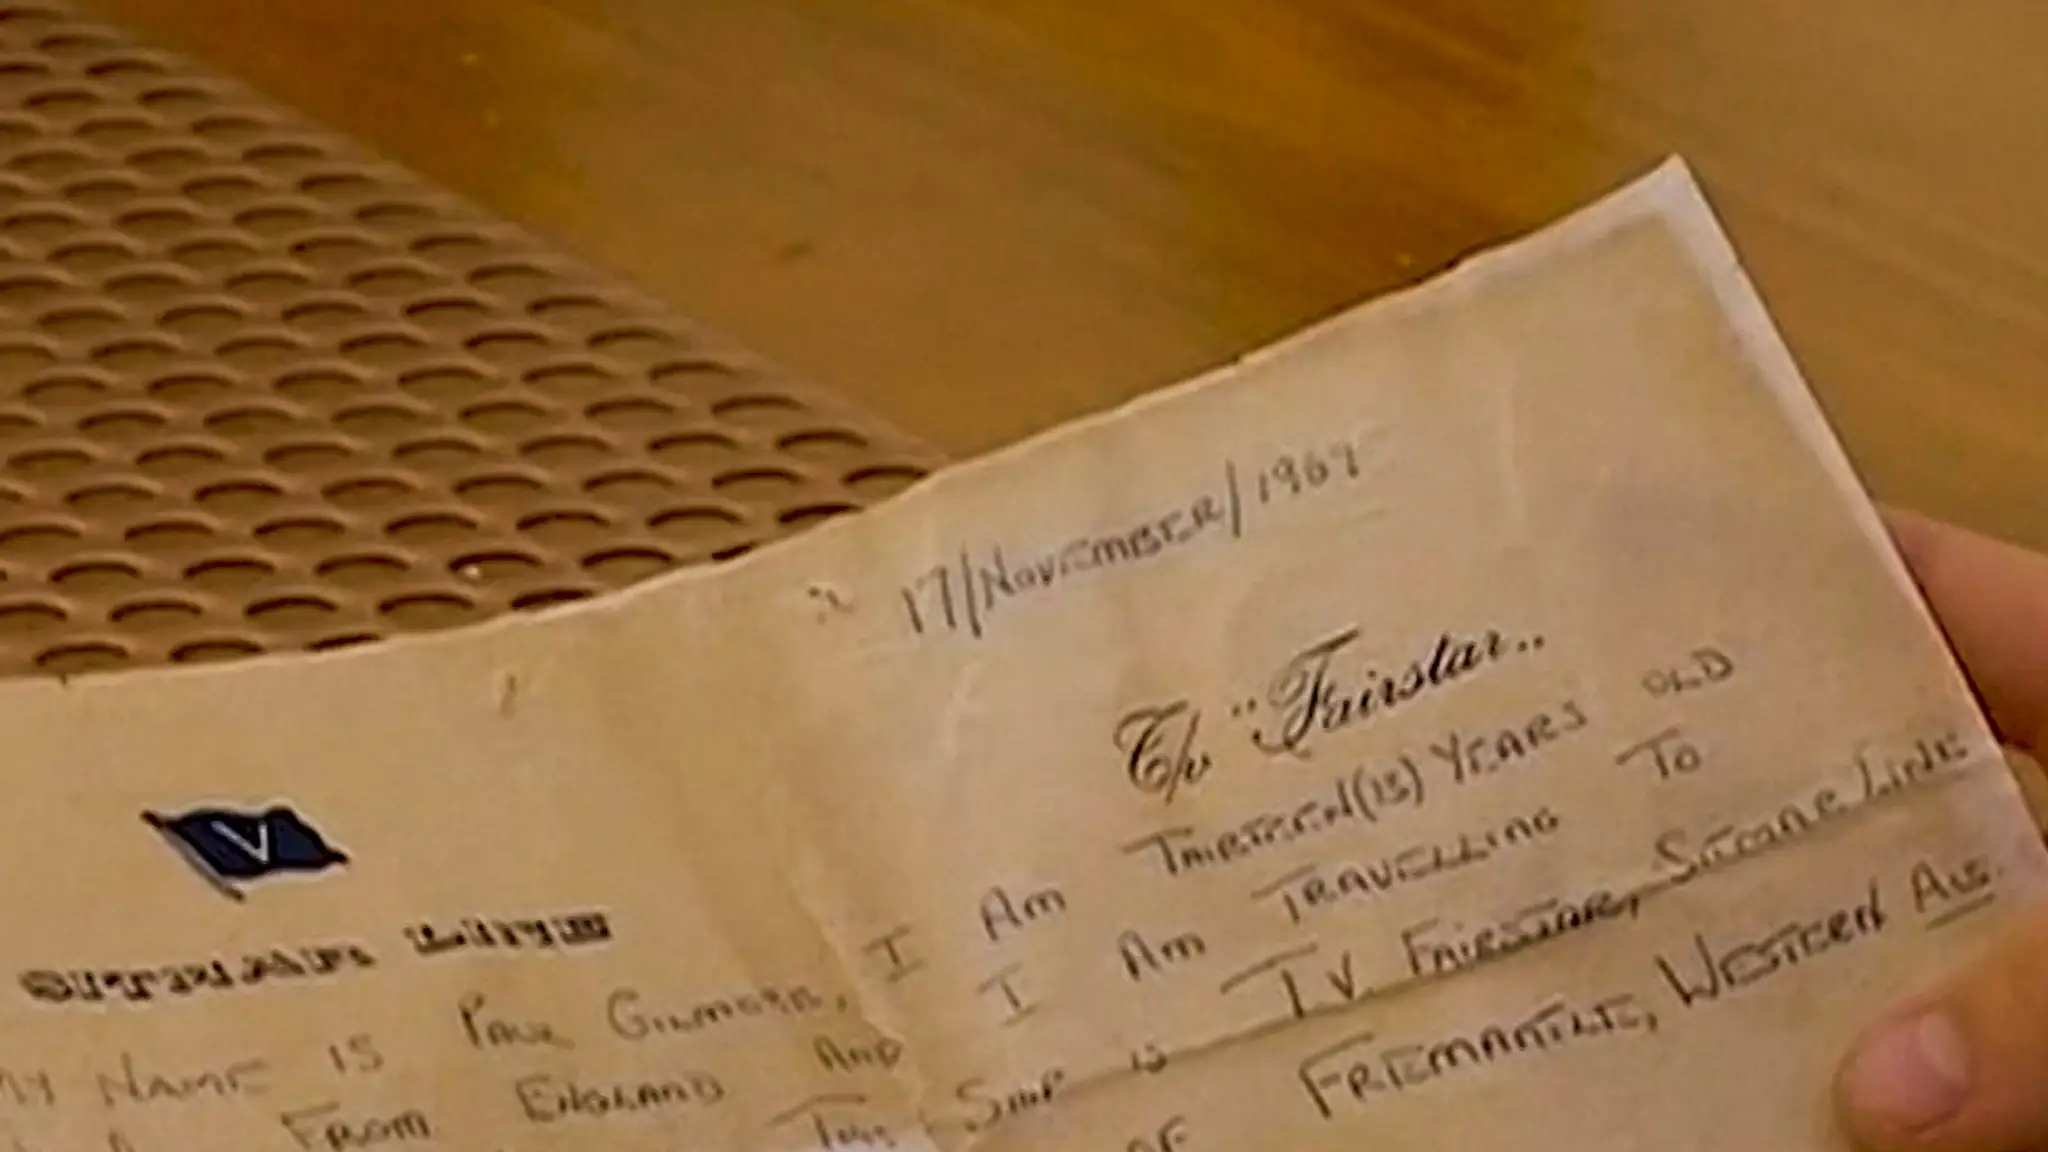 17/NOVEMBER/1969
T/v "Fairstar"
V
SITMAR LINE
MY NAME IS PAUL GILMORE, I AM THIRTEEN (13) YEARS OLD
FROM ENGLAND AND I AM TRAVELLING TO
THIS SHIP IS T.V. FAIRSTAR, SITMAR LINE
OF FREMANTLE, WESTERN AUS.